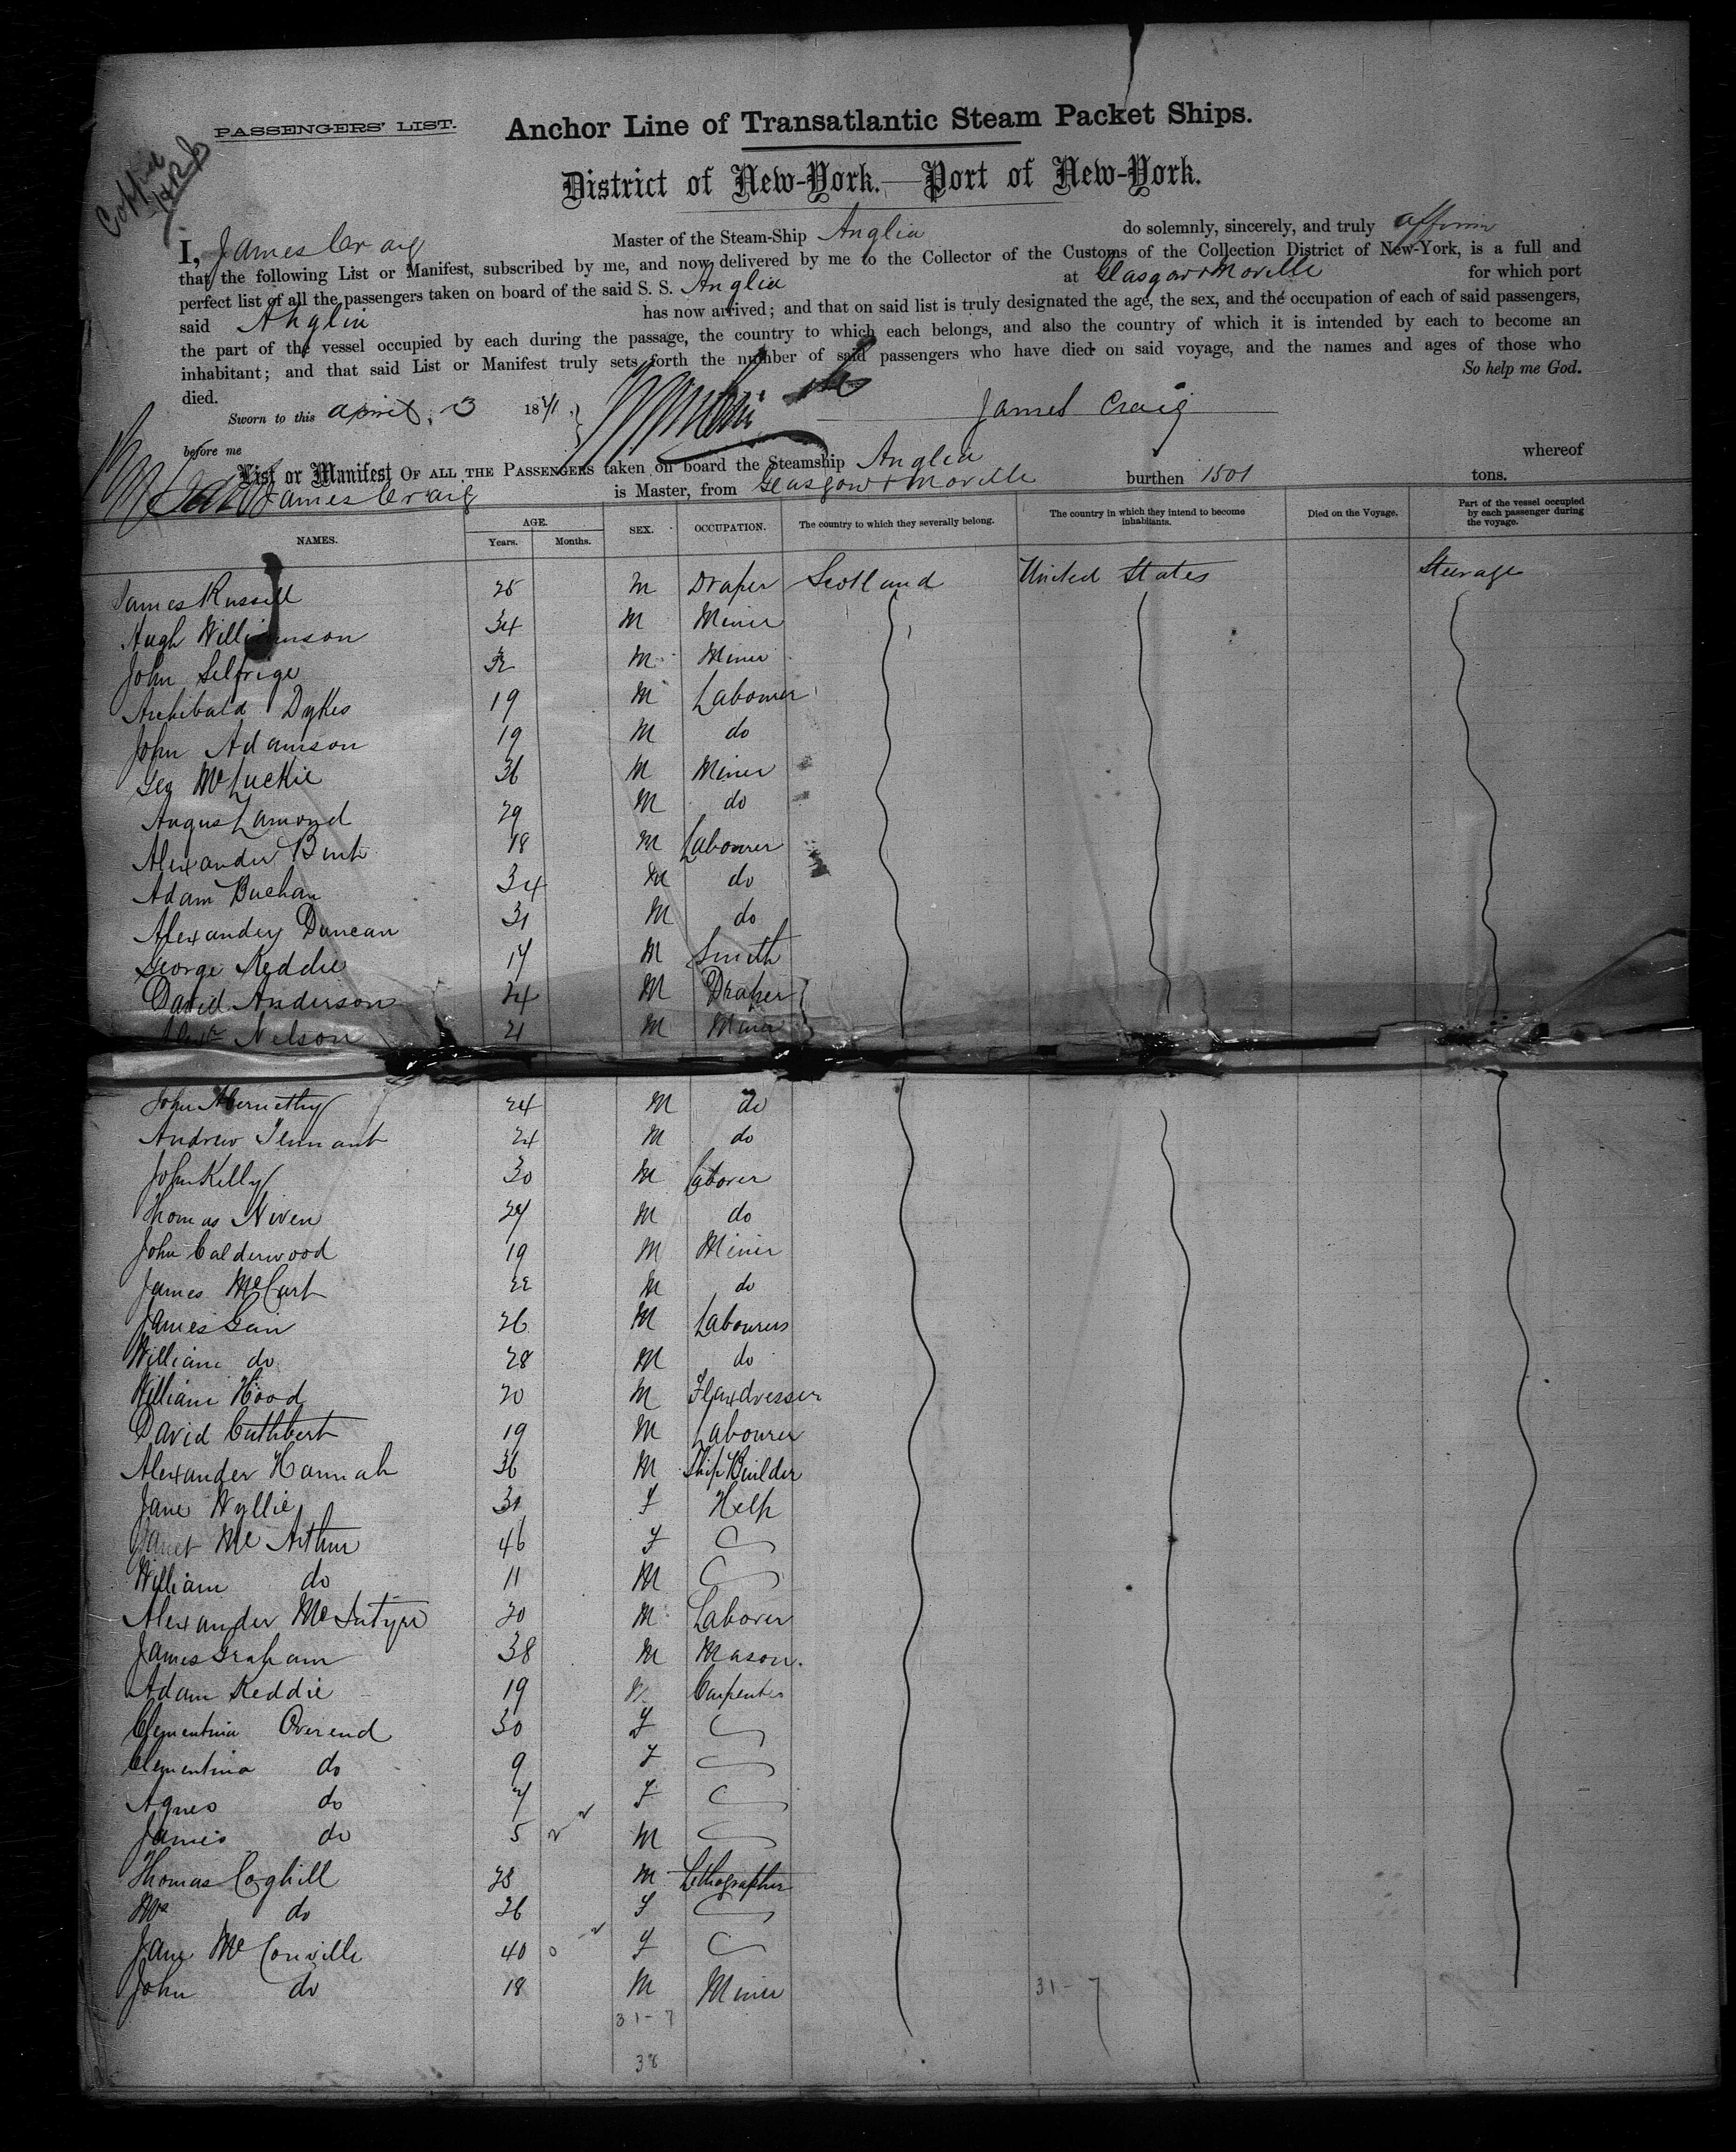 PASSENGERS' LIST.
Anchor Line of Transatlantic Steam Packet Ships.
District of New-York.—Port of New-York.
I, James Craig Master of the Steam-Ship Anglia do solemnly, sincerely, and truly affirm
that the following List or Manifest, subscribed by me, and now delivered by me to the Collector of the Customs of the Collection District of New-York, is a full and
perfect list of all the passengers taken on board of the said S. S. Anglia at Glasgow & Moville for which port
said Anglia has now arrived; and that on said list is truly designated the age, the sex, and the occupation of each of said passengers,
the part of the vessel occupied by each during the passage, the country to which each belongs, and also the country of which it is intended by each to become an
inhabitant; and that said List or Manifest truly sets forth the number of said passengers who have died on said voyage, and the names and ages of those who
died. So help me God.
Sworn to this April 3 1871 James Craig
before me
List or Manifest OF ALL THE PASSENGERS taken on board the Steamship Anglia whereof
James Craig is Master, from Glasgow & Moville burthen 1501 tons.
NAMES. AGE. Years. Months. SEX. OCCUPATION. The country to which they severally belong. The country in which they intend to become inhabitants. Died on the Voyage. Part of the vessel occupied by each passenger during the voyage.
James Russell 25 M Draper Scotland United States Steerage
Hugh Williamson 34 M Miner
John Selfrige 32 M Miner
Archibald Dykes 19 M Labourer
John Adamson 19 M do
Geo McLuckie 36 M Miner
Angus Lamond 29 M do
Alexander 18 M Labourer
Adam Buchan 34 M do
Alexander Duncan 31 M do
George Keddie 17 M Smith
David Anderson 24 M Draper
Nelson 21 M Miner
John Abernethy 24 M do
Andrew Tennant 24 M do
John Kelly 30 M Laborer
Thomas Niven 27 M do
John Calderwood 19 M Miner
James McCart 22 M do
James Gain 26 M Labourers
William do 28 M do
William Hood 20 M Flaxdresser
David Cuthbert 19 M Labourer
Alexander Hannah 36 M Ship Builder
Jane Wyllie 31 F Help
Janet McArthur 46 F
William do 11 M
Alexander McIntyre 20 M Laborer
James Graham 38 M Mason.
Adam Keddie 19 M Carpenter
Clementina Overend 30 F
Clementina do 9 F
Agnes do 7 F
James do 5 M
Thomas Coghill 28 M Lithographer
Mrs do 26 F
Jane McConville 40 F
John do 18 M Miner
31-7 31-7
38